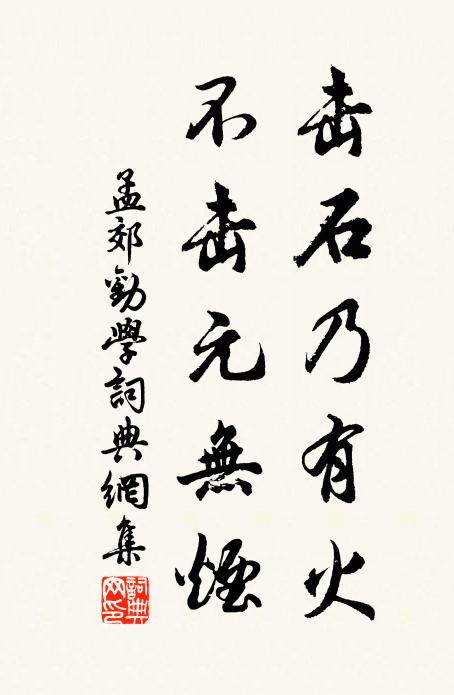 击石乃有火
不击元無煙
孟郊勸學詞典網集
詞典网印